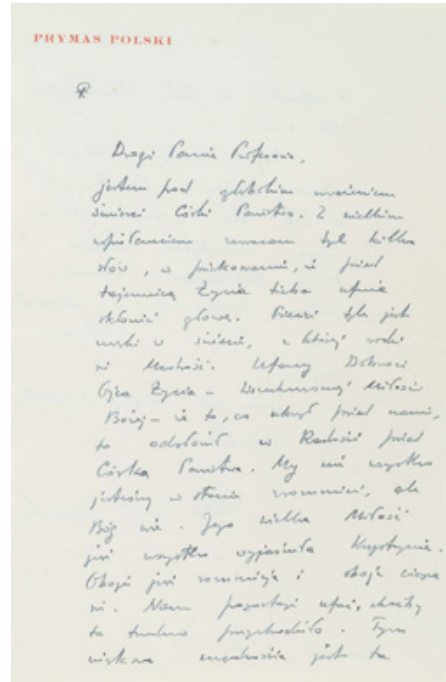 PRYMAS POLSKI
Drogi Panie Profesorze,
jestem pod głębokim wrażeniem
śmierci Córki Państwa. Z wielkim
współczuciem tych kilka
słów, w przekonaniu, iż przed
tajemnicą Życia trzeba ufnie
skłonić głowę.
Ufamy Dobroci
Ojca Życia – Miłości
Bożej – iż to, co ukrył przed nami,
to odsłonił w Radości przed
Córką Państwa. My nie wszystko
jesteśmy w stanie zrozumieć, ale
Bóg wie. Jego wielka Miłość
już wszystko wyjaśniła Krystynie.
Oboje już rozumieją i oboje cieszą
się. Nam pozostaje ufać, choćby
to trudno przychodziło. Tym
większa jest ta